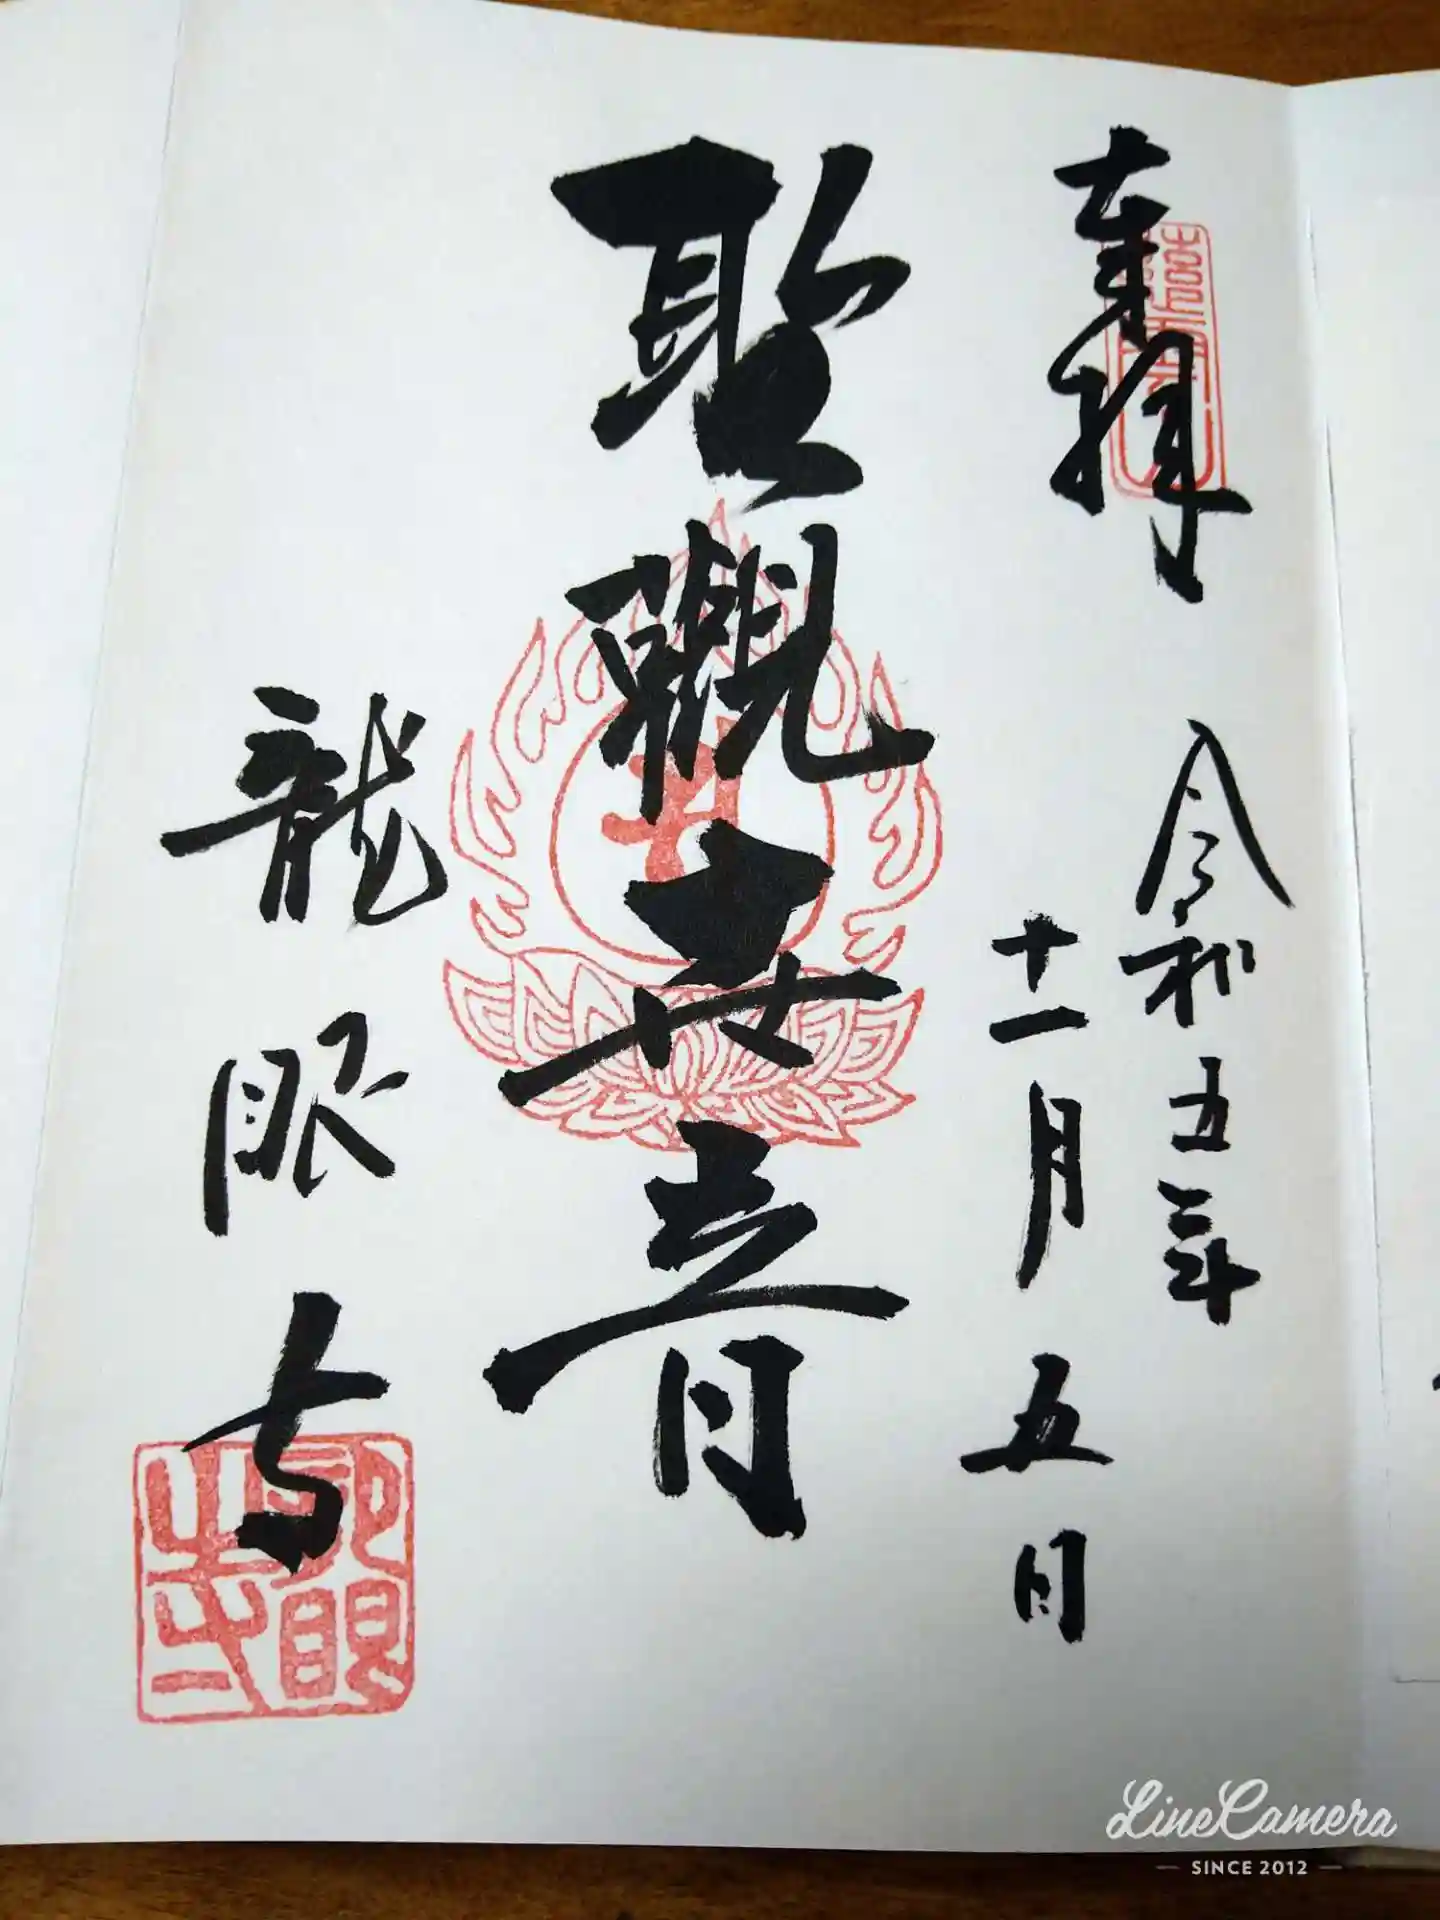 奉拝
令和五年
十一月五日
聖觀世音
龍眼寺
LineCamera
SINCE 2012